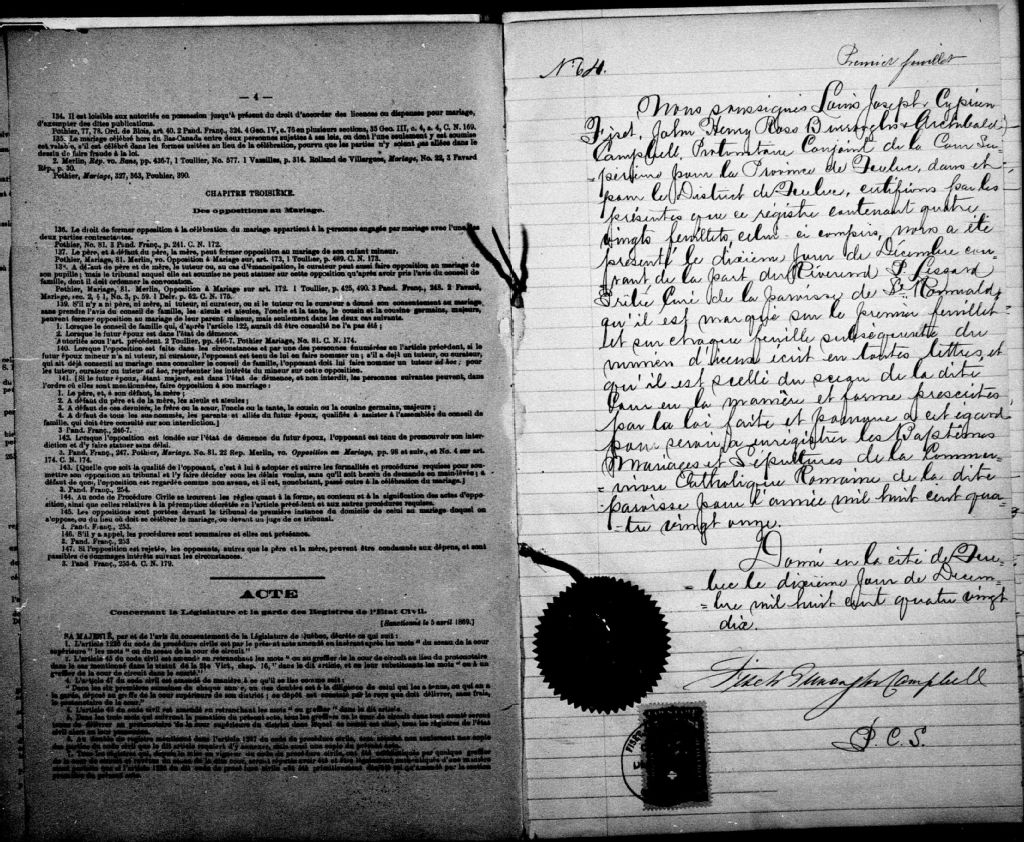 — 4 —
134. Il est loisible aux autorités en possession jusqu'à présent du droit d'accorder des licences ou dispenses pour mariage,
d'exempter des dites publications.
Pothier, 77, 78. Ord. de Blois, art. 40. 2 Pand. Franç., 324. 4 Geo. IV, c. 76 en plusieurs sections, 35 Geo. III, c. 4, s. 4, C. N. 169.
135. Le mariage célébré hors du Bas-Canada entre deux personnes sujettes à ses lois, ou dont l'une seulement y est soumise
est valable, s'il est célébré dans les formes usitées au lieu de la célébration, pourvu que les parties n'y soient pas allées dans le
dessein de faire fraude à la loi.
2. Merlin, Rép. vo. Bans, pp. 436-7, 1 Toullier, No. 577. 1 Vazeilles, p. 314. Rolland de Villargues, Mariage, No. 22, 3 Favard
Rép., p. 50.
Pothier, Mariage, 327, 363, Pouhier, 390.
CHAPITRE TROISIÈME.
Des oppositions au Mariage.
136. Le droit de former opposition à la célébration du mariage appartient à la personne engagée par mariage avec l'une des
deux parties contractantes.
Pothier, No. 81. 3 Pand. Franç., p. 241. C. N. 172.
137. Le père, et à défaut du père, la mère, peut former opposition au mariage de son enfant mineur.
Pothier, Mariage, 81. Merlin, vo. Opposition à Mariage sur art. 173, 1 Toullier, p. 489. C. N. 173.
138. A défaut de père et de mère, le tuteur ou, au cas d'émancipation, le curateur peut aussi faire opposition au mariage de
son pupille; mais le tribunal auquel elle est soumise ne peut statuer sur cette opposition qu'après avoir pris l'avis du conseil de
famille, dont il doit ordonner la convocation.
Pothier, Mariage, 81. Merlin, Opposition à Mariage sur art. 172. 1 Toullier, p. 425, 490. 3 Pand. Franç., 248. 2 Favard,
Mariage, sec. 2, § 1, No. 3, p. 59. 1 Delv. p. 62. C. N. 175.
139. S'il n'y a ni père, ni mère, ni tuteur, ni curateur, ou si le tuteur ou le curateur a donné son consentement au mariage,
sans prendre l'avis du conseil de famille, les aïeuls et aïeules, l'oncle et la tante, le cousin et la cousine germains, majeurs,
peuvent former opposition au mariage de leur parent mineur, mais seulement dans les deux cas suivants.
1. Lorsque le conseil de famille qui, d'après l'article 122, aurait dû être consulté ne l'a pas été;
2. Lorsque le futur époux est dans l'état de démence.
Autorités sous l'art. précédent. 2 Toullier, pp. 446-7. Pothier Mariage, No. 81. C. N. 174.
140. Lorsque l'opposition est faite dans les circonstances et par une des personnes énumérées en l'article précédent, si le
futur époux mineur n'a ni tuteur, ni curateur, l'opposant est tenu de lui en faire nommer un; s'il a déjà un tuteur, ou curateur,
qui ait déjà consenti au mariage sans consulter le conseil de famille, l'opposant doit lui faire nommer un tuteur ad hoc; pour
les tuteur, curateur ou tuteur ad hoc, représenter les intérêts du mineur sur cette opposition.
141. [Si le futur époux, étant majeur, est dans l'état de démence, et non interdit, les personnes suivantes peuvent, dans
l'ordre où elles sont mentionnées, faire opposition à son mariage:
1. Le père, et, à son défaut, la mère;
2. A défaut du père et de la mère, les aïeuls et aïeules;
3. A défaut de ces derniers, le frère ou la sœur, l'oncle ou la tante, le cousin ou la cousine germains, majeurs;
4. A défaut de tous les sus-nommés, les parents et alliés du futur époux, qualifiés à assister à l'assemblée du conseil de
famille, qui doit être consulté sur son interdiction.]
3 Pand. Franç., 246-7.
142. Lorsque l'opposition est fondée sur l'état de démence du futur époux, l'opposant est tenu de promouvoir son inter-
diction et d'y faire statuer sans délai.
3. Pand. Franç., 247. Pothier, Mariage. No. 81. 22 Rep. Merlin, vo. Opposition au Mariage, pp. 98 et suiv., et No. 4 sur art.
174. C. N. 174.
143. [Quelle que soit la qualité de l'opposant, c'est à lui à adopter et suivre les formalités et procédures requises pour sou-
mettre son opposition au tribunal et l'y faire décider sous les délais voulus, sans qu'il soit besoin de demande en main-levée; à
défaut de quoi, l'opposition est regardée comme non avenue, et il est, nonobstant, passé outre à la célébration du mariage.]
3. Pand. Franç., 254.
144. Au code de Procédure Civile se trouvent les règles quant à la forme, au contenu et à la signification des actes d'oppo-
sition, ainsi que celles relatives à la péremption décrétée en l'article précédent et aux autres procédures requises.
145. Les oppositions sont portées devant le tribunal de première instance du domicile de celui au mariage duquel on
s'oppose, ou du lieu où doit se célébrer le mariage, ou devant un juge de ce tribunal.
3. Pand. Franç., 253.
146. S'il y a appel, les procédures sont sommaires et elles ont préséance.
3. Pand. Franç., 253
147. Si l'opposition est rejetée, les opposants, autres que le père et la mère, peuvent être condamnés aux dépens, et sont
passibles de dommages intérêts suivant les circonstances.
3. Pand. Franç., 255-6. C. N. 179.
ACTE
Concernant la Législature et la garde des Registres de l'Etat Civil.
[Sanctionné le 5 avril 1869.]
SA MAJESTÉ, par et de l'avis du consentement de la Législature de Québec, décrète ce qui suit:
1. L'article 1236 du code de procédure civile est par le présent acte amendé en insérant après les mots "du sceau de la cour
supérieure" les mots "ou du sceau de la cour de circuit."
3. L'article 47 du code civil est amendé de manière à ce qu'il se lise comme suit:
4. L'article 49 du code civil est amendé en retranchant les mots "ou greffier" dans le dit article.
N° 64.
Premier feuillet
Nous soussignés Louis Joseph Cyprien
Fiset, John Henry Ross Burroughs & Archibald
Campbell, Protonotaire Conjoint de la Cour Su-
périeure pour la Province de Québec, dans et
pour le District de Québec, certifions par les
présentes que ce régistre contenant quatre
vingts feuillets, celui-ci compris, nous a été
présenté le dixième jour de Décembre cou-
rant de la part du Révérend P. Lessard
Prêtre Curé de la paroisse de St Romuald
qu'il est marqué sur le premier feuillet
et sur chaque feuille subséquente du
numéro d'icelui écrit en toutes lettres, et
qu'il est scellé du sceau de la dite
Cour en la manière et forme prescrites
par la loi faite et pourvue à cet égard
pour servir à enregistrer les Baptêmes
Mariages et Sépultures de la Commu-
nion Catholique Romaine de la dite
paroisse pour l'année mil huit cent qua-
tre vingt onze.
Donné en la cité de Qué-
bec le dixième jour de Décem-
bre mil huit cent quatre vingt
dix.
Fiset Burroughs Campbell
P. C. S.